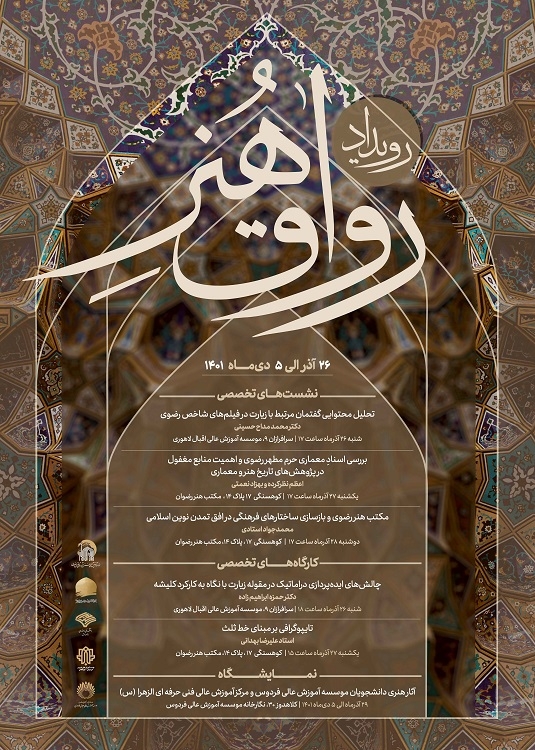 رویداد
رواق هنر
۲۶ آذر الی ۵ دی‌ماه ۱۴۰۱
نشست‌های تخصصی
تحلیل محتوایی گفتمان مرتبط با زیارت در فیلم‌های شاخص رضوی
دکتر محمد مداح حسینی
شنبه ۲۶ آذرماه ساعت ۱۷ | سرافرازان ۹، موسسه آموزش عالی اقبال لاهوری
بررسی اسناد معماری حرم مطهر رضوی و اهمیت منابع مغفول
در پژوهش‌های تاریخ هنر و معماری
اعظم نظرکرده و بهزاد نعمتی
یکشنبه ۲۷ آذرماه ساعت ۱۷ | کوهسنگی ۱۷ پلاک ۱۴، مکتب هنر رضوان
مکتب هنر رضوی و بازسازی ساختارهای فرهنگی در افق تمدن نوین اسلامی
محمدجواد استادی
دوشنبه ۲۸ آذرماه ساعت ۱۷ | کوهسنگی ۱۷، پلاک ۱۴، مکتب هنر رضوان
کارگاه‌های تخصصی
چالش‌های ایده‌پردازی دراماتیک در مقوله زیارت با نگاه به کارکرد کلیشه
دکتر حمزه ابراهیم زاده
شنبه ۲۶ آذرماه ساعت ۱۸ | سرافرازان ۹، موسسه آموزش عالی اقبال لاهوری
تایپوگرافی بر مبنای خط ثلث
استاد علیرضا بهدانی
یکشنبه ۲۷ آذرماه ساعت ۱۵ | کوهسنگی ۱۷، پلاک ۱۴، مکتب هنر رضوان
نمایشگاه
آثار هنری دانشجویان موسسه آموزش عالی فردوس و مرکز آموزش عالی فنی حرفه ای الزهرا (س)
۲۹ آذرماه الی ۵ دی‌ماه ۱۴۰۱ | کلاهدوز ۳۰، نگارخانه موسسه آموزش عالی فردوس